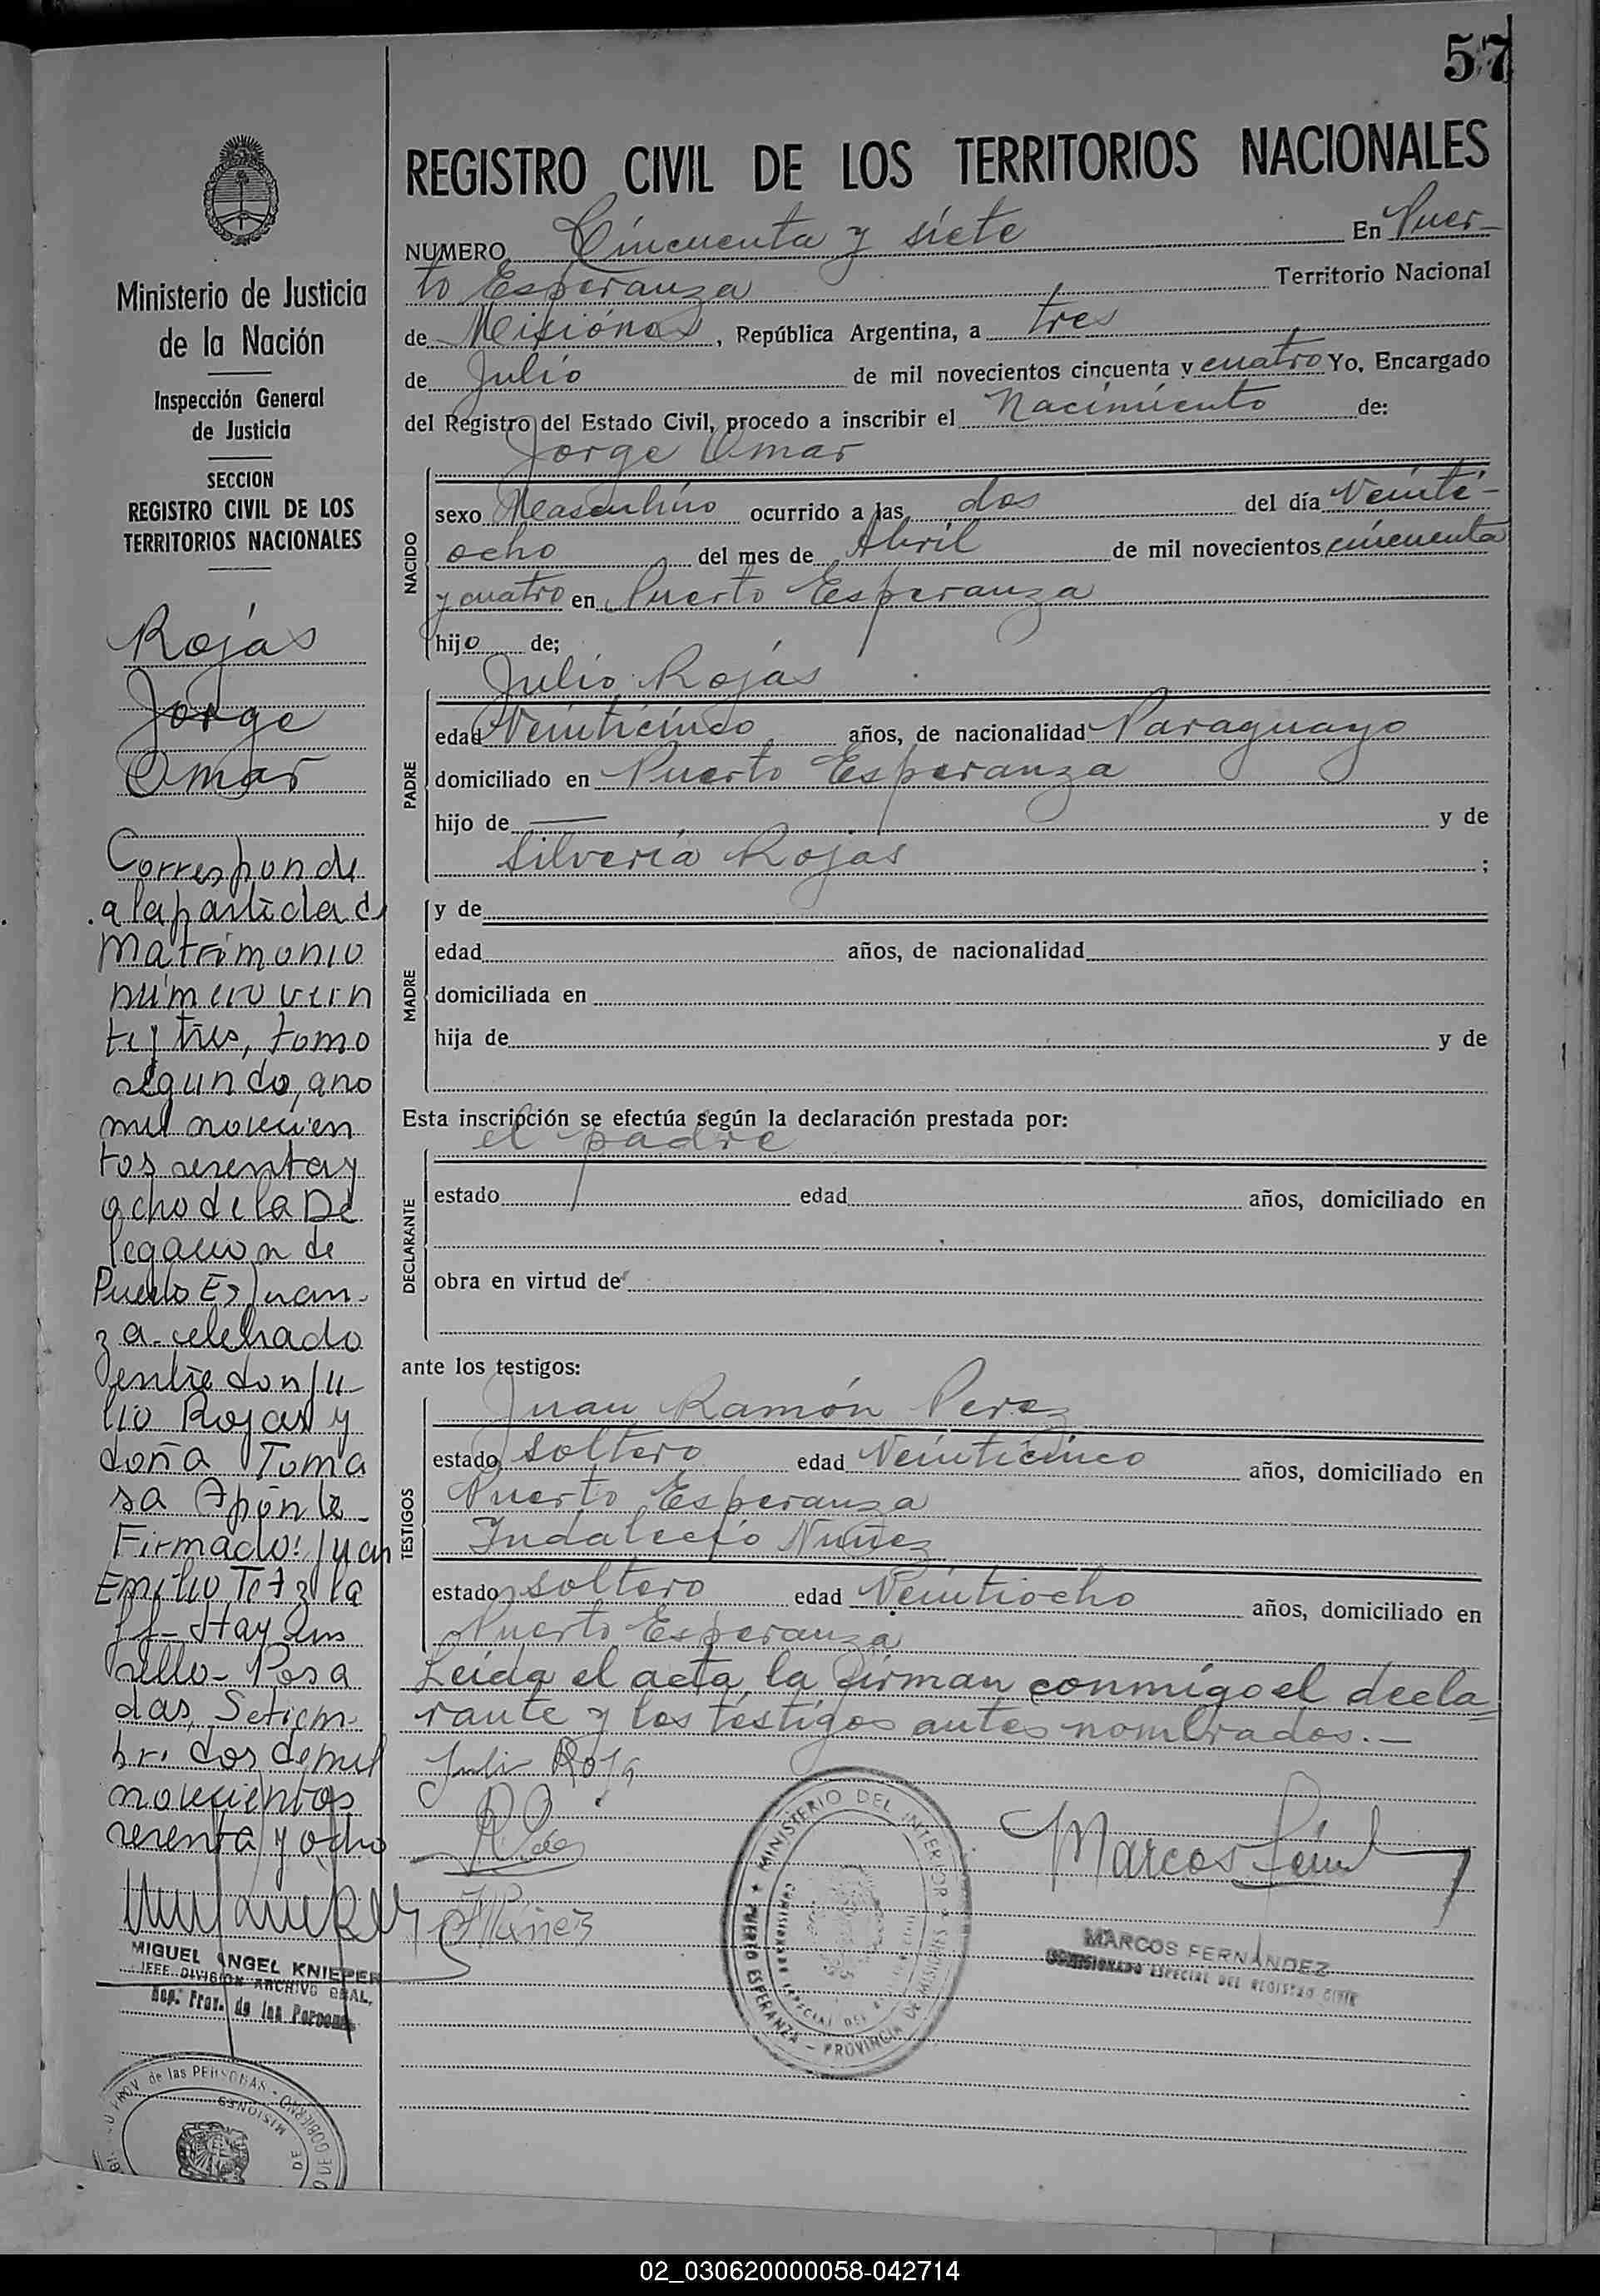 57
REGISTRO CIVIL DE LOS TERRITORIOS NACIONALES
NUMERO Cincuenta y siete En Puer-
to Esperanza Territorio Nacional
de Misiones, República Argentina, a tres
de Julio de mil novecientos cincuenta y cuatro Yo, Encargado
del Registro del Estado Civil, procedo a inscribir el Nacimiento de:
Jorge Omar
NACIDO
sexo Masculino ocurrido a las dos del día Veinti-
ocho del mes de Abril de mil novecientos cincuenta
y cuatro en Puerto Esperanza
hijo de;
Julio Rojas
PADRE
edad Veinticinco años, de nacionalidad Paraguayo
domiciliado en Puerto Esperanza
hijo de — y de
Silveria Rojas ;
MADRE
y de
edad años, de nacionalidad
domiciliada en
hija de y de
Esta inscripción se efectúa según la declaración prestada por:
el padre
DECLARANTE
estado edad años, domiciliado en
obra en virtud de
ante los testigos:
TESTIGOS
Juan Ramón Perez
estado soltero edad Veinticinco años, domiciliado en
Puerto Esperanza
Indalecio Nuñez
estado soltero edad Veintiocho años, domiciliado en
Puerto Esperanza
Leida el acta, la firman conmigo el decla
rante y los testigos antes nombrados.—
Julio Roja
Marcos
Nuñez
MINISTERIO DEL INTERIOR
PUERTO ESPERANZA - PROVINCIA DE MISIONES
MARCOS FERNANDEZ
COMISIONADO ESPECIAL DEL REGISTRO CIVIL
Ministerio de Justicia
de la Nación
Inspección General
de Justicia
SECCION
REGISTRO CIVIL DE LOS
TERRITORIOS NACIONALES
Rojas
Jorge
Omar
Corresponde
a la partida de
Matrimonio
número vein
te y tres, tomo
segundo, ano
mil novecien
tos sesenta y
ocho de la De
legacion de
Puerto Esperan-
za celebrado
entre don Ju-
lio Rojas y
doña Toma
sa Aponte-
Firmado: Juan
Emilio Tetzla
ff- Hay un
sello- Posa
das, Setiem-
bre dos de mil
novecientos
sesenta y ocho
MIGUEL ANGEL KNIEPER
JEFE DIVISION ARCHIVO GRAL.
Reg. Prov. de las Personas
PROV. de las PERSONAS - GOBIERNO DE
MISIONES
02_030620000058-042714